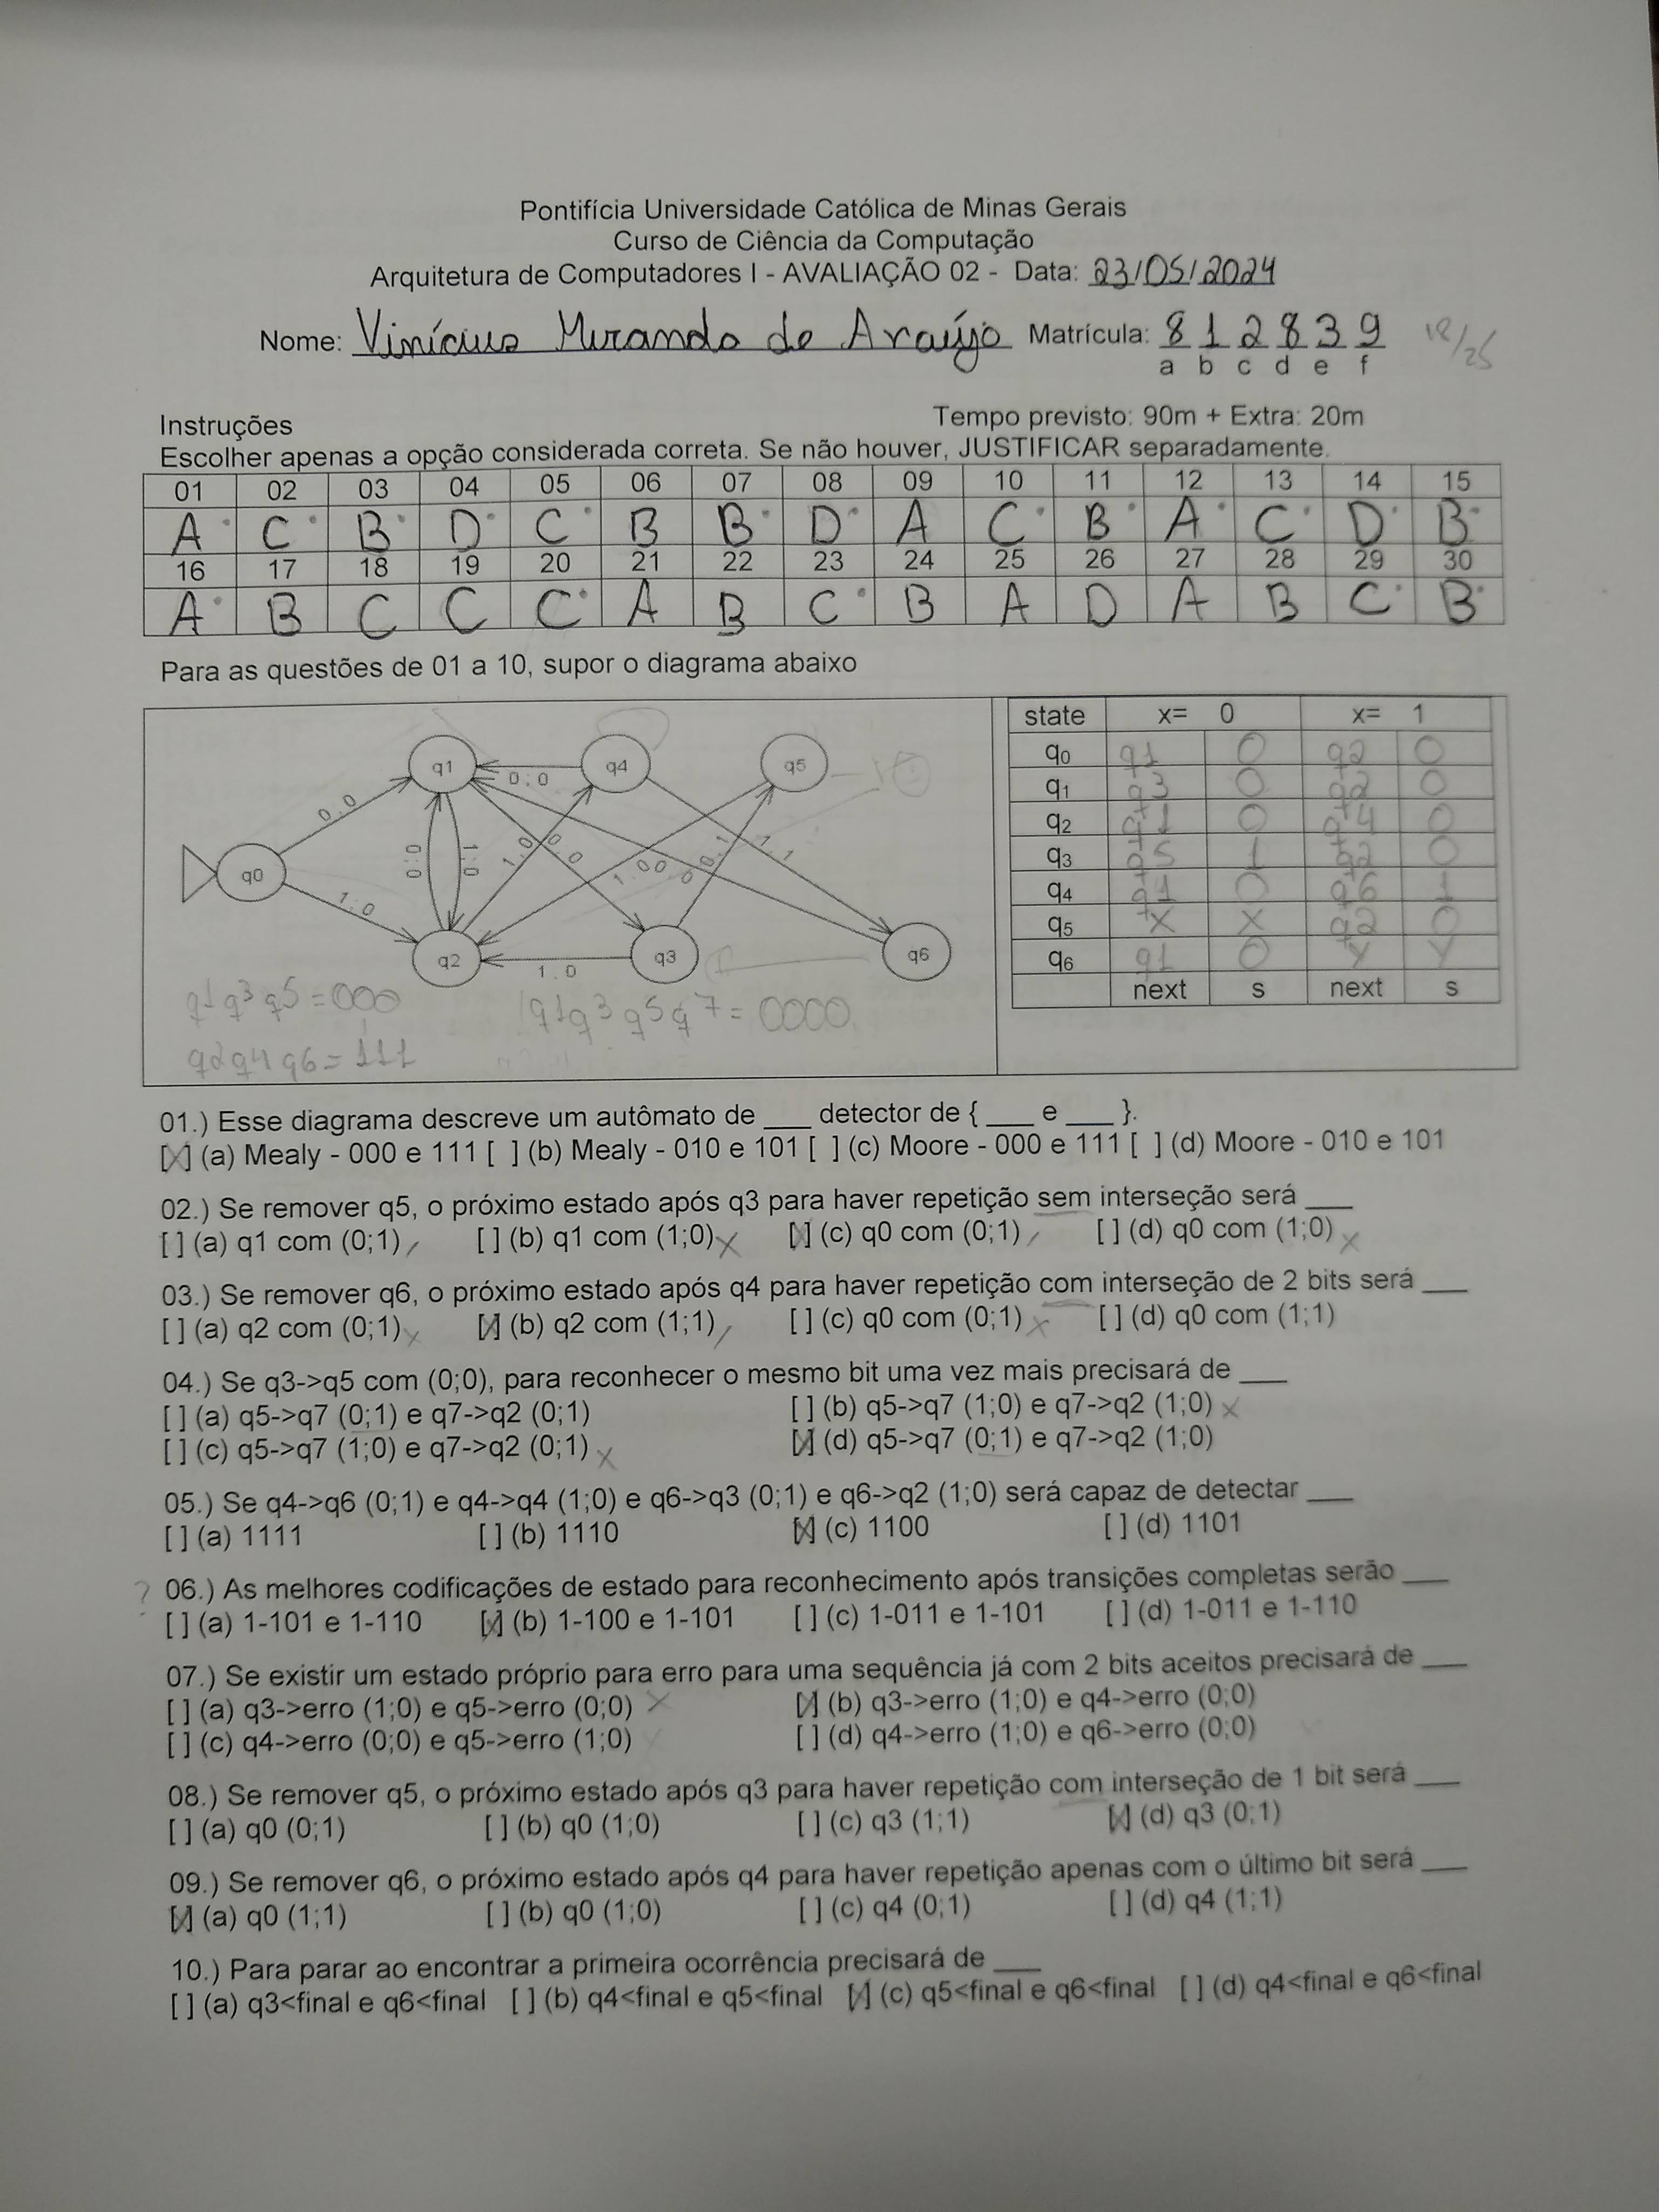 Pontifícia Universidade Católica de Minas Gerais
Curso de Ciência da Computação
Arquitetura de Computadores I - AVALIAÇÃO 02 - Data: 23/05/2024
Nome: Vinícius Miranda de Araújo Matrícula: 8 1 2 8 3 9 18/25
a b c d e f
Instruções Tempo previsto: 90m + Extra: 20m
Escolher apenas a opção considerada correta. Se não houver, JUSTIFICAR separadamente.
01 02 03 04 05 06 07 08 09 10 11 12 13 14 15
A C B D C B B D A C B A C D B
16 17 18 19 20 21 22 23 24 25 26 27 28 29 30
A B C C C A B C B A D A B C B
Para as questões de 01 a 10, supor o diagrama abaixo
q1 q4 q5
0 ; 0
0 ; 0
q0
0 ; 0 1 ; 0 1 ; 0 0 ; 0 1 ; 0 0 ; 0 0 ; 1 1 ; 1
1 ; 0
q2 q3 q6
1 ; 0
q1 q3 q5 = 000 q1 q3 q5 q7 = 0000
q2 q4 q6 = 111
state x= 0 x= 1
q0 q1 0 q2 0
q1 q3 0 q2 0
q2 q1 0 q4 0
q3 q5 1 q2 0
q4 q1 0 q6 1
q5 X X q2 0
q6 q1 0
next s next s
01.) Esse diagrama descreve um autômato de ___ detector de { ___ e ___ }.
[X] (a) Mealy - 000 e 111 [ ] (b) Mealy - 010 e 101 [ ] (c) Moore - 000 e 111 [ ] (d) Moore - 010 e 101
02.) Se remover q5, o próximo estado após q3 para haver repetição sem interseção será ___
[ ] (a) q1 com (0;1) [ ] (b) q1 com (1;0) X [X] (c) q0 com (0;1) [ ] (d) q0 com (1;0) X
03.) Se remover q6, o próximo estado após q4 para haver repetição com interseção de 2 bits será ___
[ ] (a) q2 com (0;1) X [X] (b) q2 com (1;1) [ ] (c) q0 com (0;1) X [ ] (d) q0 com (1;1)
04.) Se q3->q5 com (0;0), para reconhecer o mesmo bit uma vez mais precisará de ___
[ ] (a) q5->q7 (0;1) e q7->q2 (0;1) [ ] (b) q5->q7 (1;0) e q7->q2 (1;0) X
[ ] (c) q5->q7 (1;0) e q7->q2 (0;1) X [X] (d) q5->q7 (0;1) e q7->q2 (1;0)
05.) Se q4->q6 (0;1) e q4->q4 (1;0) e q6->q3 (0;1) e q6->q2 (1;0) será capaz de detectar ___
[ ] (a) 1111 [ ] (b) 1110 [X] (c) 1100 [ ] (d) 1101
? 06.) As melhores codificações de estado para reconhecimento após transições completas serão ___
[ ] (a) 1-101 e 1-110 [X] (b) 1-100 e 1-101 [ ] (c) 1-011 e 1-101 [ ] (d) 1-011 e 1-110
07.) Se existir um estado próprio para erro para uma sequência já com 2 bits aceitos precisará de ___
[ ] (a) q3->erro (1;0) e q5->erro (0;0) X [X] (b) q3->erro (1;0) e q4->erro (0;0)
[ ] (c) q4->erro (0;0) e q5->erro (1;0) [ ] (d) q4->erro (1;0) e q6->erro (0;0)
08.) Se remover q5, o próximo estado após q3 para haver repetição com interseção de 1 bit será ___
[ ] (a) q0 (0;1) [ ] (b) q0 (1;0) [ ] (c) q3 (1;1) [X] (d) q3 (0;1)
09.) Se remover q6, o próximo estado após q4 para haver repetição apenas com o último bit será ___
[X] (a) q0 (1;1) [ ] (b) q0 (1;0) [ ] (c) q4 (0;1) [ ] (d) q4 (1;1)
10.) Para parar ao encontrar a primeira ocorrência precisará de ___
[ ] (a) q3<final e q6<final [ ] (b) q4<final e q5<final [X] (c) q5<final e q6<final [ ] (d) q4<final e q6<final